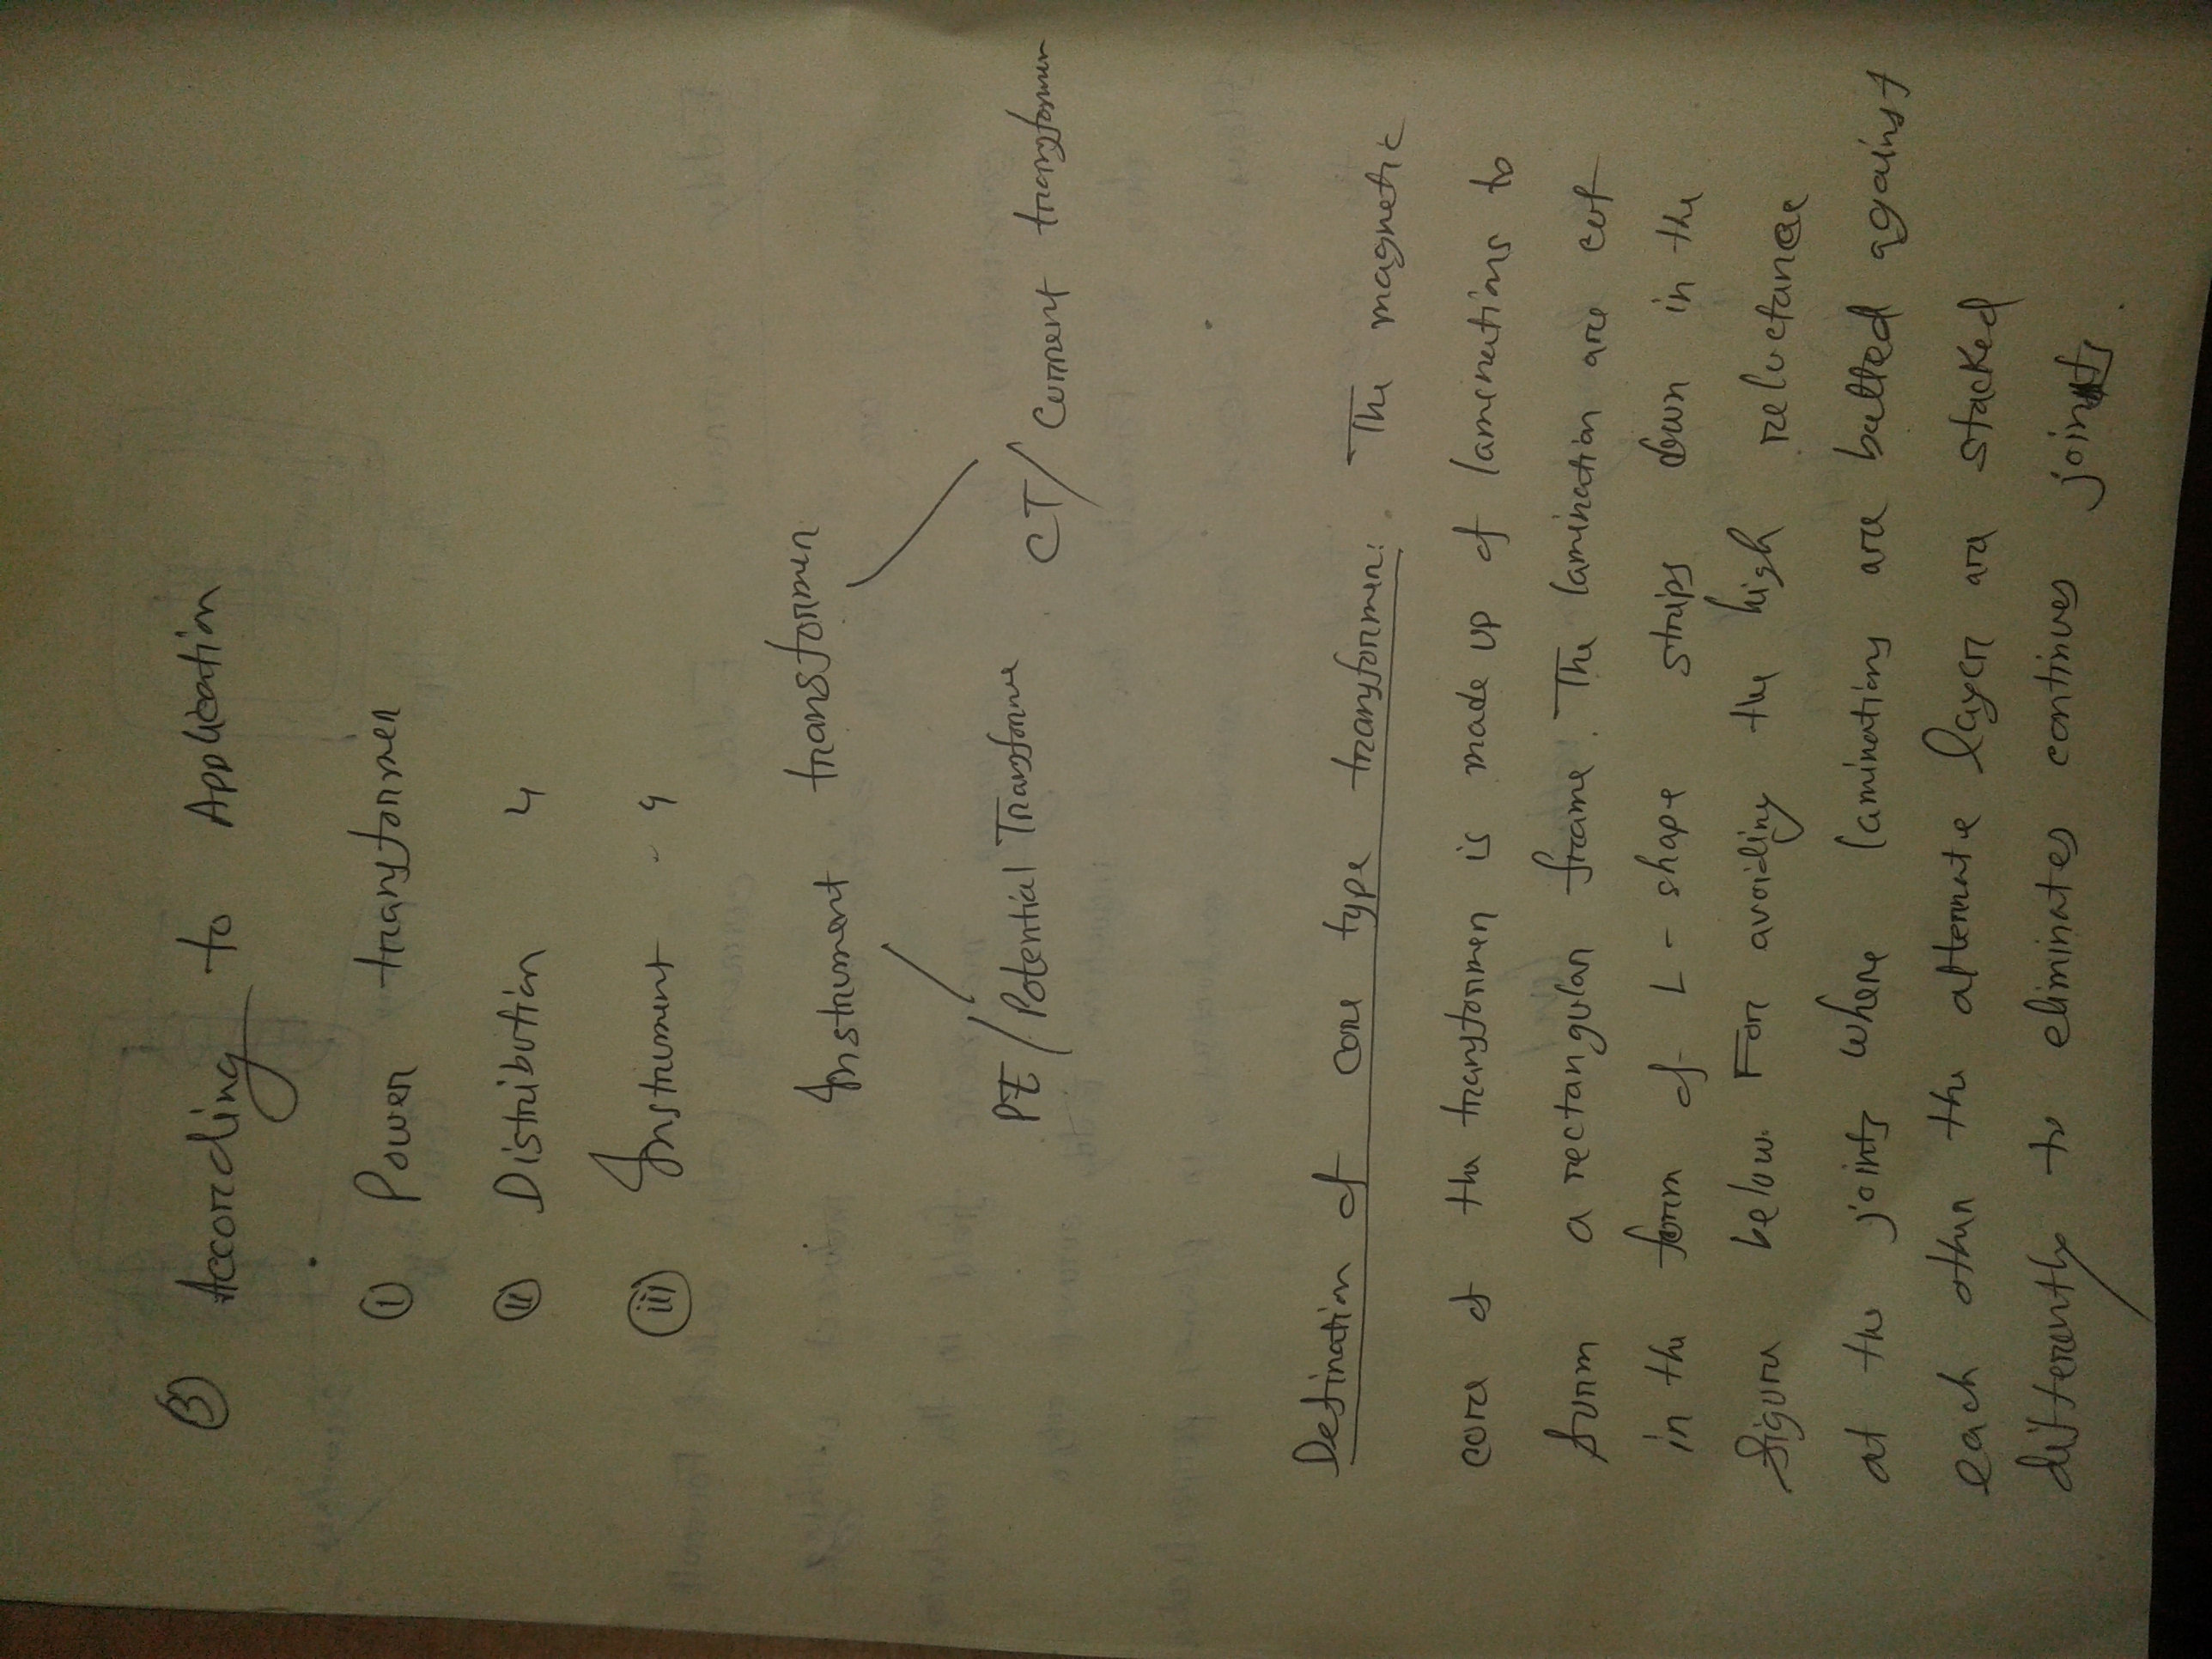 ③ According to Application
① Power transformer
ⅱ Distribution "
ⅲ Instrument - "
Instrument transformer
PT / Potential Transformer
CT / Current transformer
Defination of core type transformer: The magnetic
core of the transformer is made up of lamenations to
form a rectangular frame. The lamination are cut
in the form of L - shape strips down in the
figure below. For avoiding the high reluctance
at the joints where laminations are butted against
each other the alternate layer are stacked
differently to eliminates continues joints.